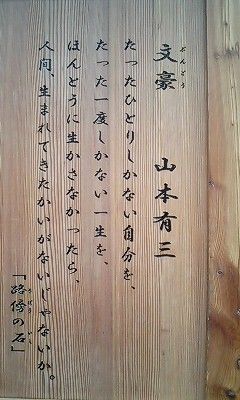 文豪 山本有三
ぶんごう
たったひとりしかない自分を、
たった一度しかない一生を、
ほんとうに生かさなかったら、
人間、生まれてきたかいがないじゃないか。
「路傍の石」
ろぼう いし